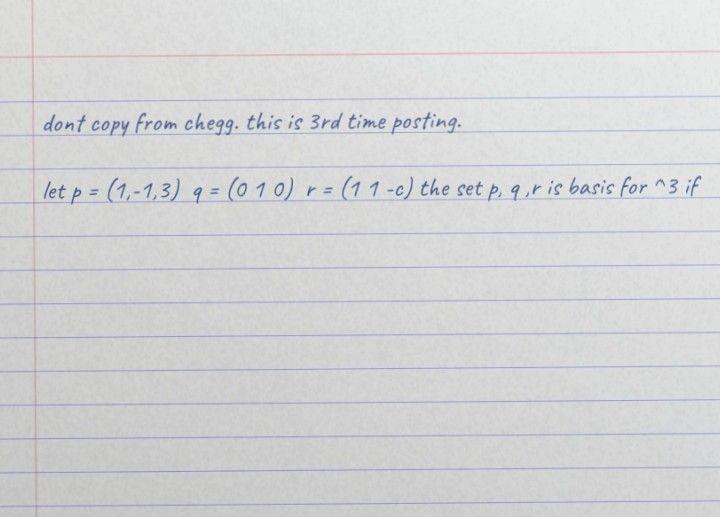 dont copy from chegg. this is 3rd time posting.
let p = (1,-1,3) q = (0 1 0) r = (1 1 -c) the set p, q ,r is basis for ^3 if